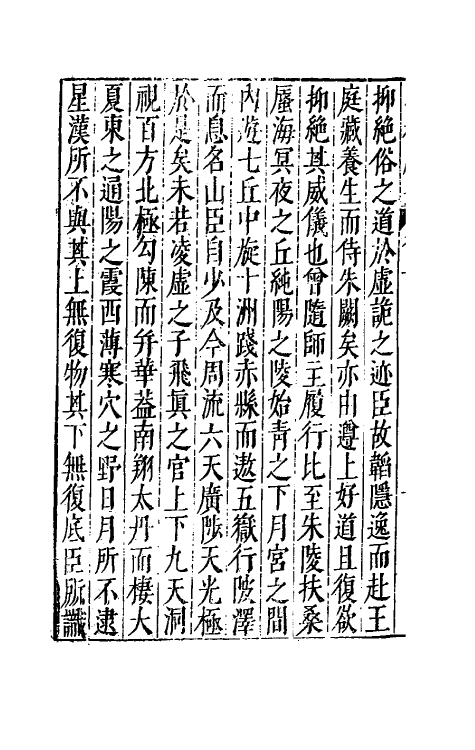 抑絶俗之道於虛詭之迹臣故韜隱逸而赴王
庭藏養生而侍朱闕矣亦由遵上好道且復欲
抑絶其威儀也曾隨師主履行比至朱陵扶桑
蜃海冥夜之丘純陽之陵始青之下月宮之間
內遊七丘中旋十洲踐赤縣而遨五嶽行陂澤
而息名山臣自少及今周流六天廣陟天光極
於是矣未若凌虛之子飛眞之官上下九天洞
視百方北極勾陳而并華葢南翔太丹而棲大
夏東之通陽之霞西薄寒穴之野日月所不逮
星漢所不與其上無復物其下無復底臣所識